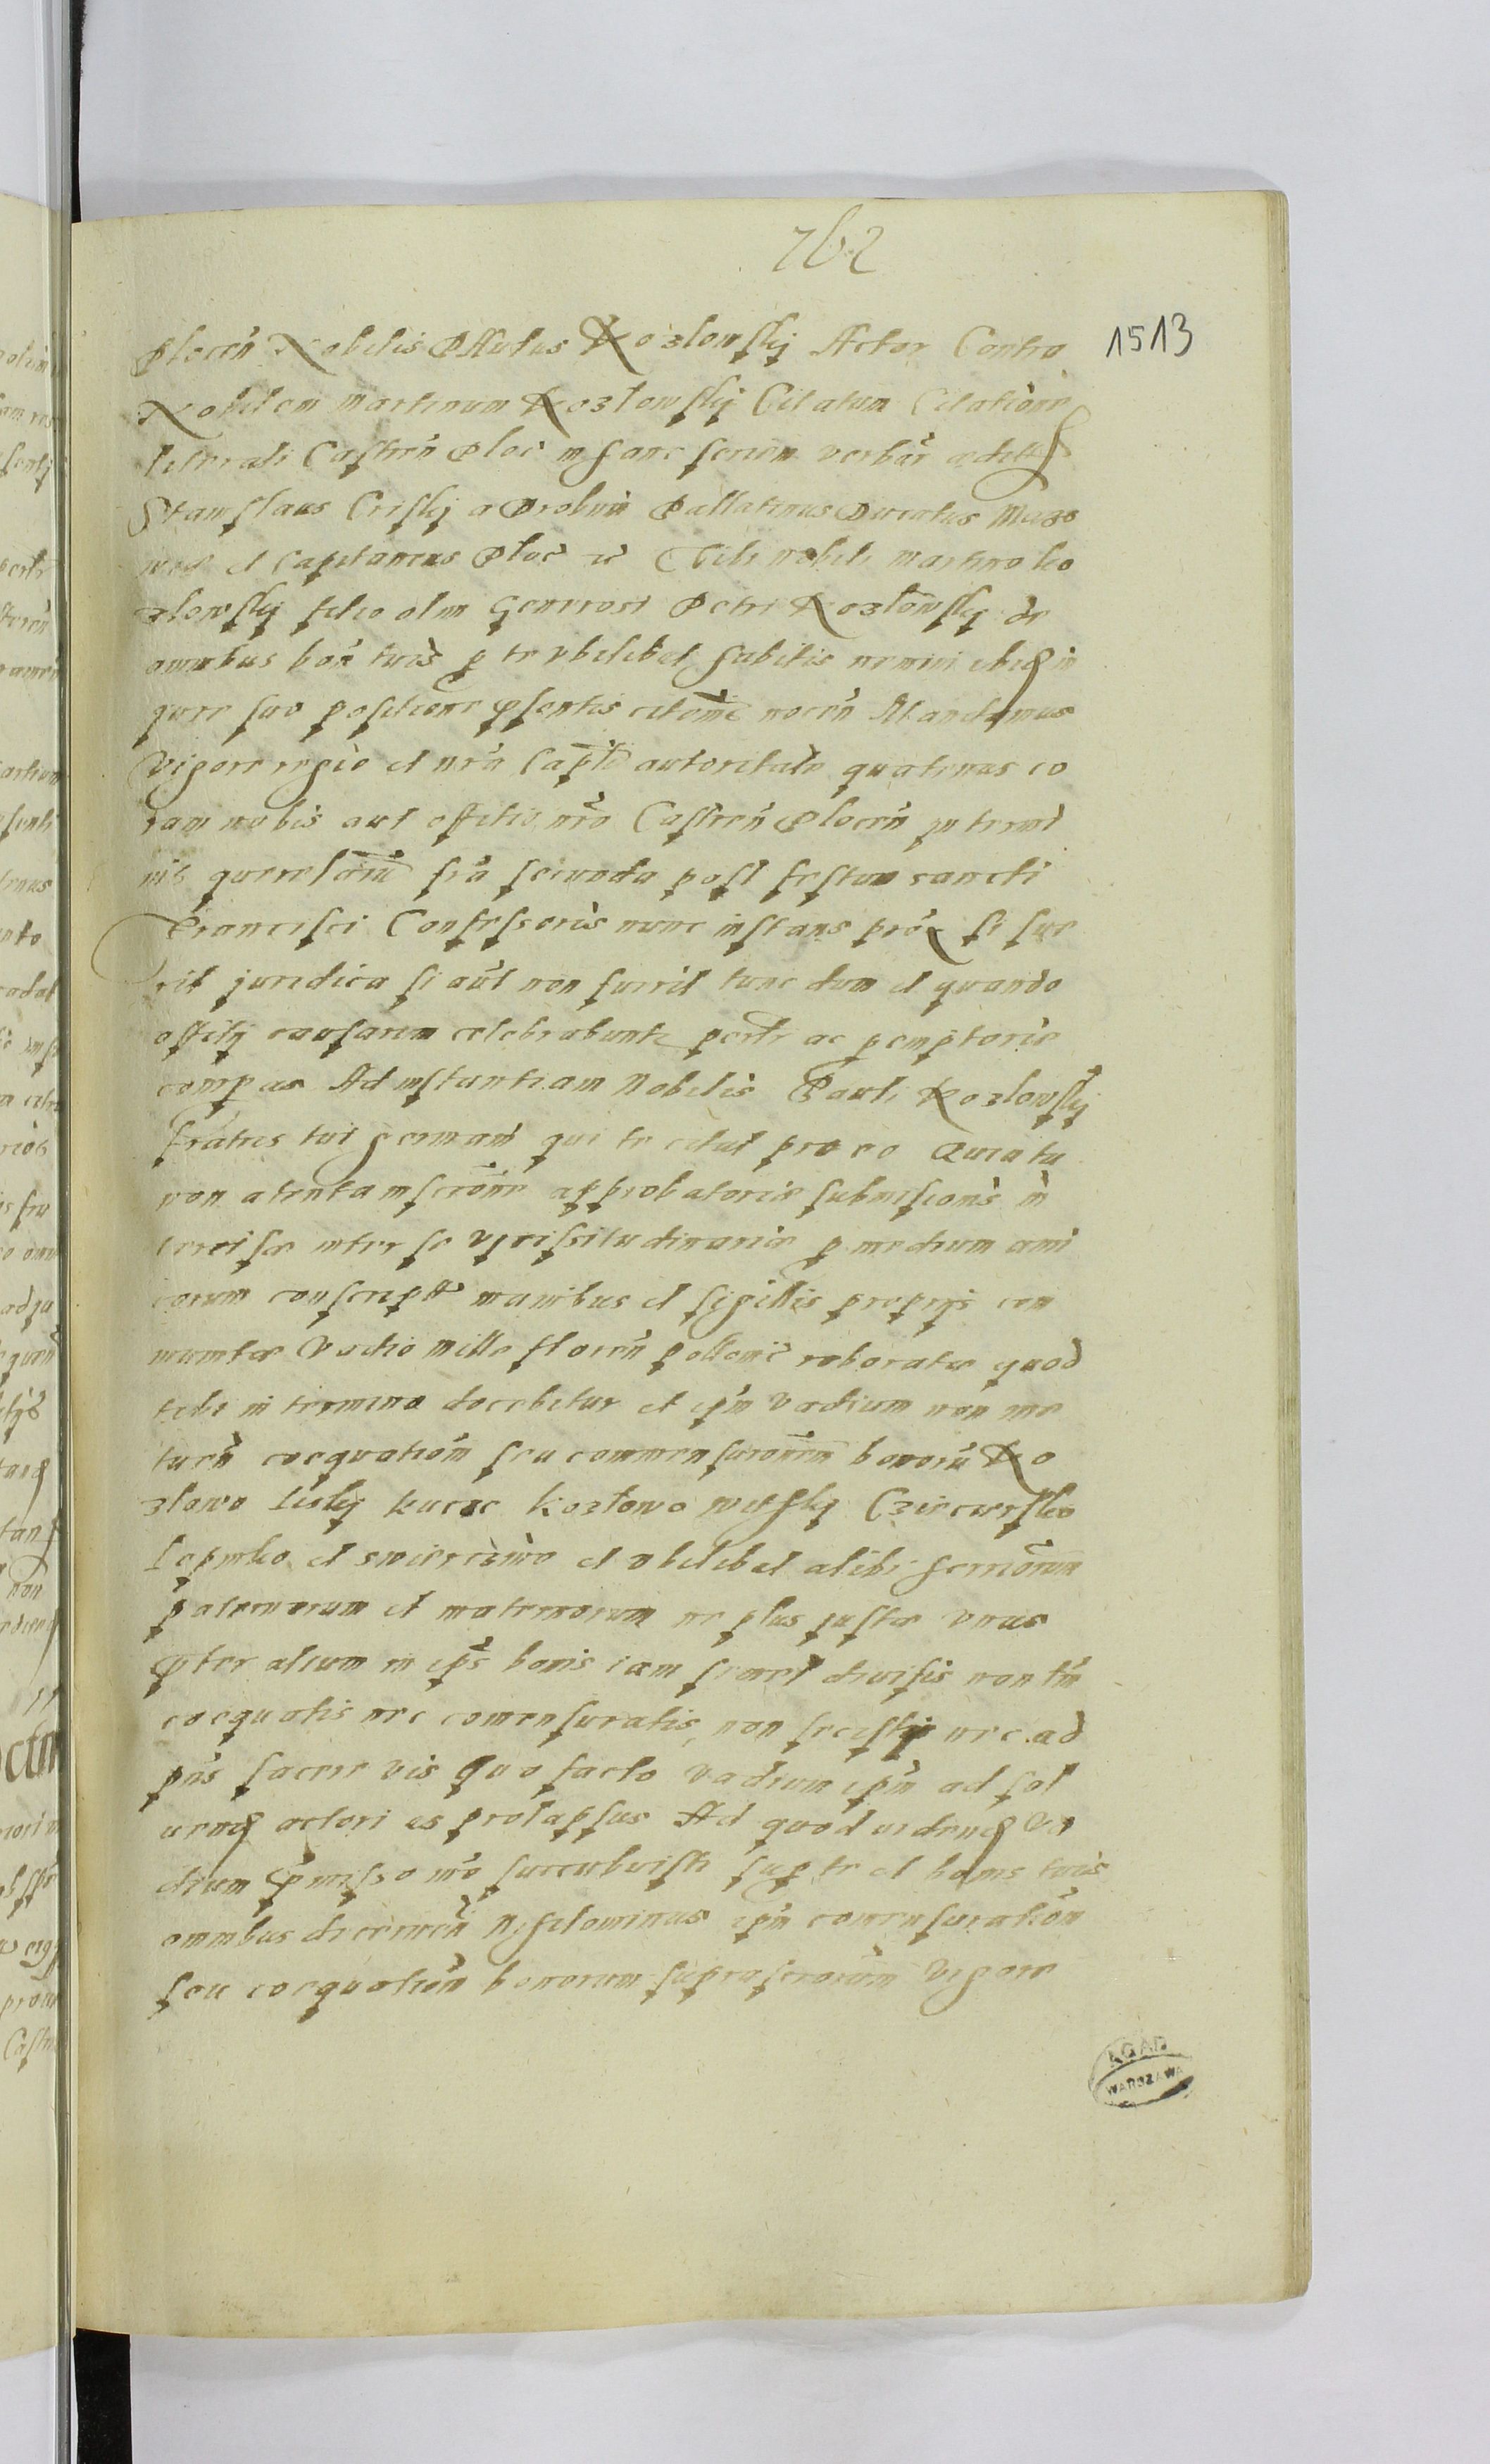 762
1513
plocen Nobilis PAulus Kozlowskij Actor Contra
Nobilem Martinum Kozlowskij Citatum Citatione
literali Castren Ploc in hanc seriem verbor
Stanislaus Criskij a Drobnin Pallatinus Ducatus Mazo
et Capitaneus Ploc Tibi nobili Martino ko
zlowskij filio olim Generosi Petri Kozlowskij de
omnibus bon tuis p te vbilibet habitis nemini in
jure suo positione pſentis citome nocen Mandamus
vigore regio et nra Capti autoritate quatenus co
ram nobis aut offitio nro Castren Plocen in termi
nis querelarū fia secunda post festum sancti
Francisci Confessoris nunc instans si fue
rit juridica si aūt non fuerit tunc dum et quando
offitij causarum celebrabunt perlr ac pemptorie
compas Ad instantiam Nobilis Pauli Kozlowskij
fratris tui germani qui te citat pro eo Quia tu
non atenta inscrone approbatoria submissionis in
inter se vicissitudinaria p medium ami
corum conscripta manibus et sigillis proprijs com
munita Vadio Mille floren pollonic roborata quod
tibi in termino docebitur et ipm vadium non me
tuen coequationm seu commensuronem bonorū Ko
zlowo kozlowo
et et vbilibet alibi
paternorum et maternorum ne plus juste vnus
pter alium in ips bonis iam semel diuisis non tm
coequatis nec comensuratis, non fecisti nec ad
pns facere vis Quo facto vadium ipm ad sol
uend actori es prolapsus Ad quod vidend va
dium pmisso mo succubuisti sup te et bonis tuis
omnibus decernen Nihilominus ipm comensurationm
seu coequationm bonorum suprascrorum vigore
AGAD
WARSZAWA